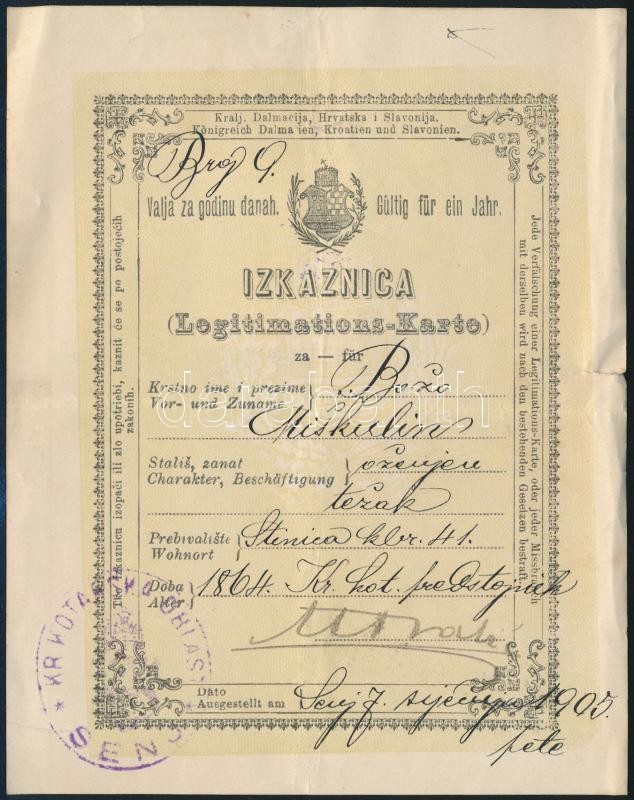 Kralj. Dalmacija, Hrvatska i Slavonija.
Königreich Dalmatien, Kroatien und Slavonien.
Broj 9.
Valja za godinu danah. Gültig für ein Jahr.
IZKAZNICA
(Legitimations-Karte)
za — für
Krstno ime i prezime
Vor- und Zuname
Božo
Miškulin
Stališ, zanat
Charakter, Beschäftigung
oženjen
težak
Prebivalište
Wohnort
Stinica kbr. 41.
Doba
Alter
1864. Kr. kot. predstojnik
Dato
Ausgestellt am
Senj 7. siječnja 1905.
pete
Tko izkaznicu izopači ili zlo upotriebi, kaznit će se po postojećih
zakonih.
Jede Verfälschung einer Legitimations-Karte, oder jeder Missbrauch
mit derselben wird nach den bestehenden Gesetzen bestraft.
KR. KOTARSKA OBLAST
SENJ
darabanth